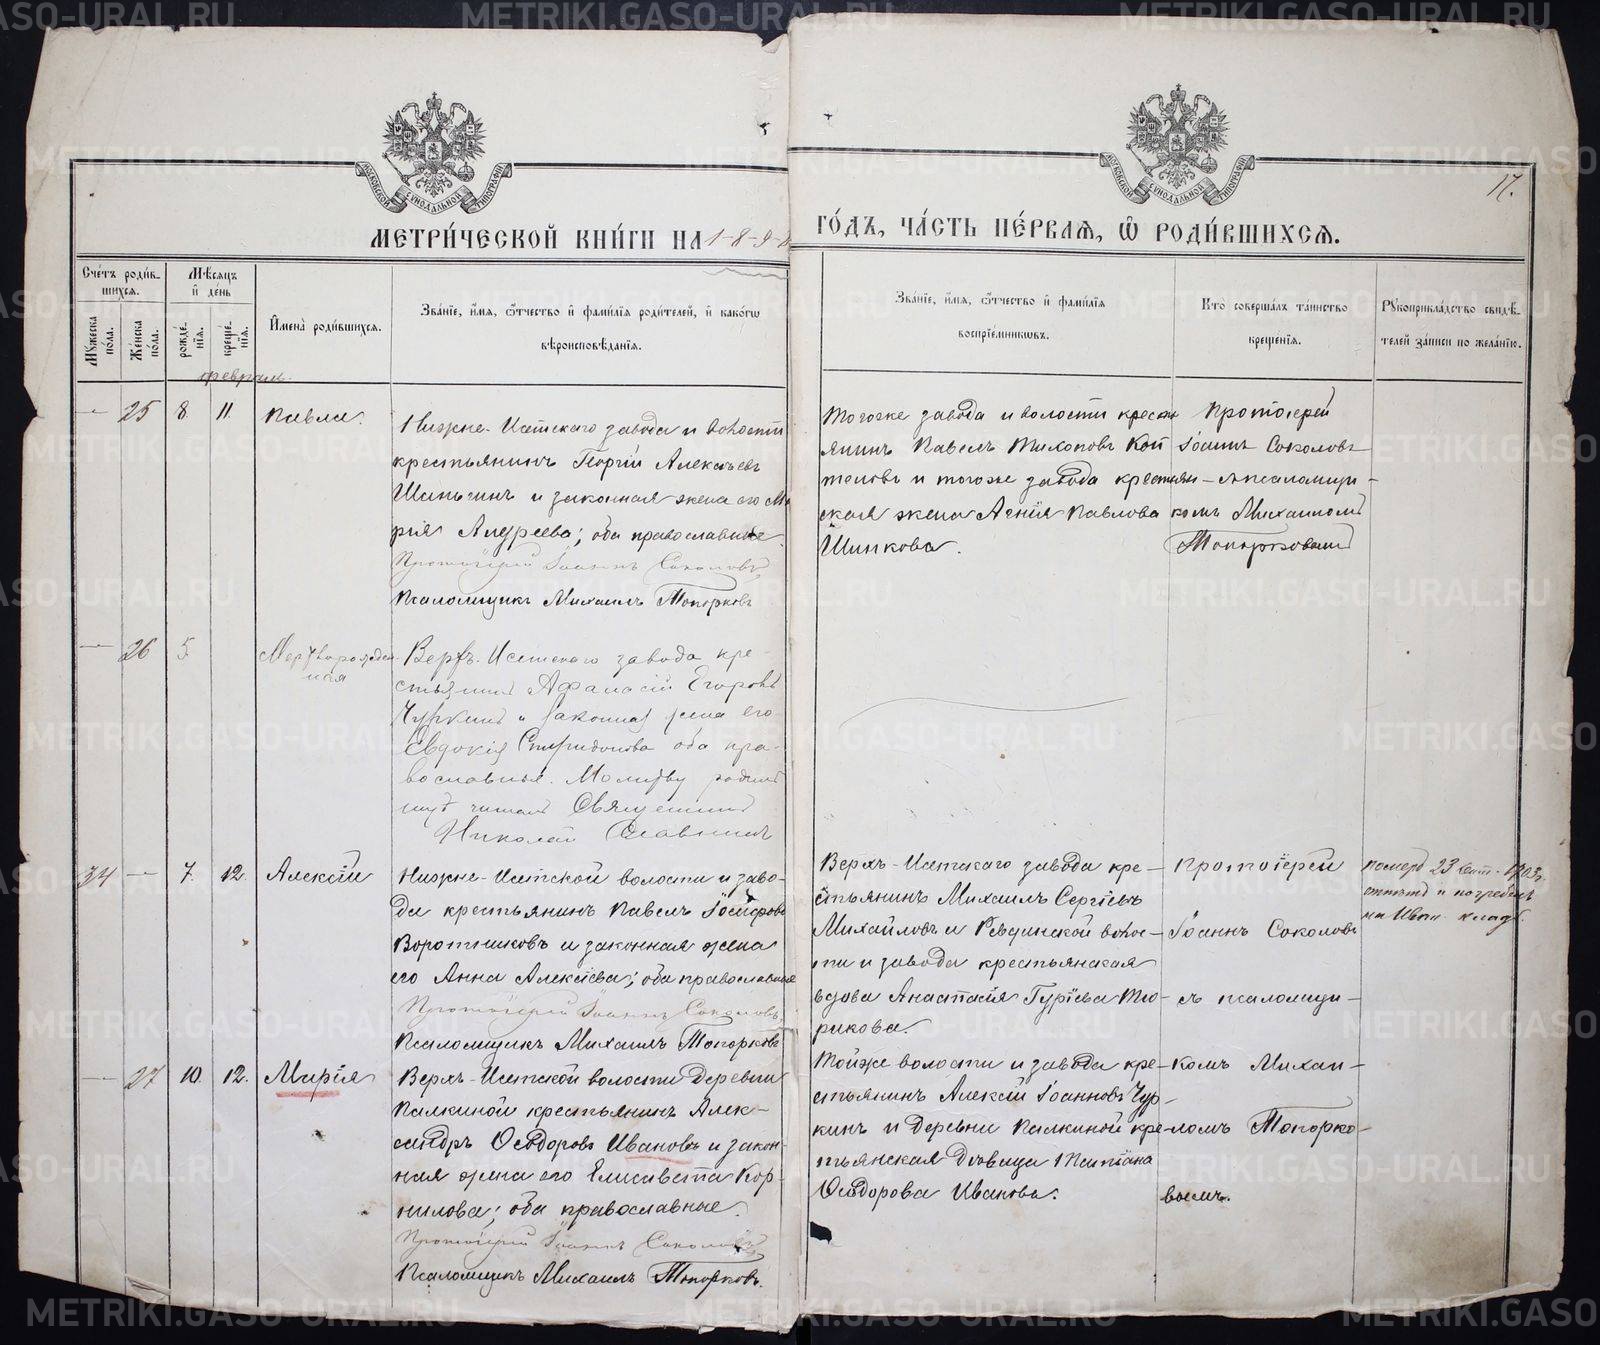 METRIKI.GASO-URAL.RU
17.
МОСКОВСКОЙ СѴНОДАЛЬНОЙ ТИПОГРАФІИ
МОСКОВСКОЙ СѴНОДАЛЬНОЙ ТИПОГРАФІИ
МЕТРИ́ЧЕСКОЙ КНИ́ГИ НА 1-8-9- ГО́ДЪ, ЧА́СТЬ ПЕ́РВАЯ, Ѡ҆ РОДИ́ВШИХСЯ.
Сче́тъ роди́в-
шихся.
Мѣ́сяцъ
и҆ де́нь
Мꙋ́жеска по́ла.
Же́нска по́ла.
рожде́-
нїѧ.
креще́-
нїѧ.
И҆мена̀ роди́вшихся.
Зва́нїе, и҆́мя, ѻ҆́тчество и҆ фамилїя роди́телей, и҆ како́гѡ
вѣроисповѣ́данїя.
Зва́нїе, и҆́мя, ѻ҆́тчество и҆ фами́лїя
воспрїе́мниковъ.
Кто̀ соверша́лъ та́инство
креще́нїя.
Рꙋкоприкла́дство свидѣ́-
телей за́писи по жела́нїю.
февраль.
— 25 8 11. Павла.
Нижне-Исетскаго завода и волости
крестьянинъ Георгій Алексѣевъ
и законная жена его Ма
рія Андреева; оба православные.
Протоіерей Іоаннъ Соколовъ
Псаломщикъ Михаилъ Топорковъ
Тогоже завода и волости кресть
янинъ Павелъ Тихоновъ Коп
теловъ и тогоже завода крестьян-
ская жена Ксенія Павлова
Шинкова.
Протоіерей
Іоаннъ Соколовъ
съ псаломщи-
комъ Михаиломъ
Топорковымъ
— 26 5. Мертворожден-
ная
Верхъ-Исетскаго завода кре-
стьянинъ Афанасій Егоровъ
Чуркинъ и законная жена его
Евдокія Спиридонова оба пра-
вославные. Молитву родиль
ницѣ читалъ Священникъ
Николай Славнинъ
34 — 7. 12. Алексѣй
Нижне-Исетской волости и заво-
да крестьянинъ Павелъ Іосифовъ
Воротниковъ и законная жена
его Анна Алексіева; оба православные
Протоіерей Іоаннъ Соколовъ
Псаломщикъ Михаилъ Топорковъ
Верхъ-Исетскаго завода кре-
стьянинъ Михаилъ Сергіевъ
Михайловъ и Ревдинской волос-
ти и завода крестьянская
вдова Анастасія Гуріева Тю-
рикова.
Протоіерей
Іоаннъ Соколовъ
съ псаломщи-
померъ 23 1903г.
отпѣтъ и погребенъ
на Иван. кладб.
— 27 10. 12. Марія
Верхъ-Исетской волости деревни
Палкиной крестьянинъ Алек-
сандръ Ѳеодоровъ Ивановъ и закон-
ная жена его Елисавета Кор-
нилова; оба православные.
Протоіерей Іоаннъ Соколовъ
Псаломщикъ Михаилъ Топорковъ.
Тойже волости и завода кре-
стьянинъ Алексій Іоанновъ Чур-
кинъ и деревни Палкиной кре-
стьянская дѣвица Татіана
Ѳеодорова Иванова.
комъ Михаи-
ломъ Топорко-
вымъ.